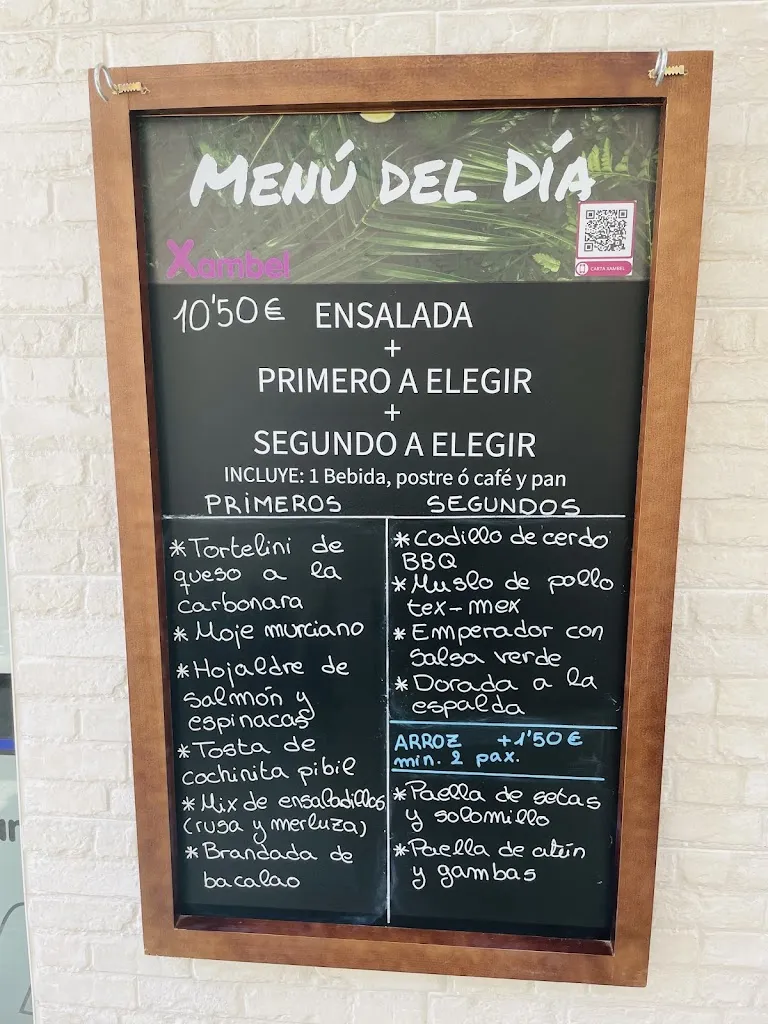 MENÚ DEL DÍA
CARTA XAMBEL
Xambel
10'50€ ENSALADA
+
PRIMERO A ELEGIR
+
SEGUNDO A ELEGIR
INCLUYE: 1 Bebida, postre ó café y pan
PRIMEROS
* Tortelini de
queso a la
carbonara
* Moje murciano
* Hojaldre de
salmón y
espinacas
* Tosta de
cochinita pibil
* Mix de ensaladillas
(rusa y merluza)
* Brandada de
bacalao
SEGUNDOS
* Codillo de cerdo
BBQ
* Muslo de pollo
tex-mex
* Emperador con
salsa verde
* Dorada a la
espalda
ARROZ +1'50€
min. 2 pax.
* Paella de setas
y solomillo
* Paella de atún
y gambas